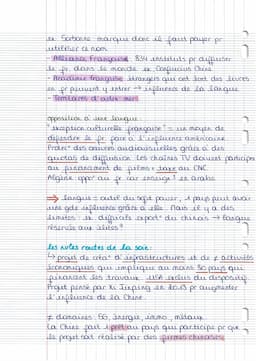 la Sorbonne marque dont il faut payer pr
utiliser ce nom
- Alliance Française : 834 instituts pr diffuser
le fr. dans le monde ≈ Confucius Chine
- Académie française étrangers qui ont écrit des livres
en fr peuvent y entrer → influence de la langue
- Territoires d'outre mer
opposition à une langue
"exception culturelle française" = un moyen de
défendre le fr. face à l'influence américaine
Protec° des œuvres audiovisuelles grâce à des
quotas de diffusion. Les chaînes TV doivent participer
au financement de films + taxe au CNC.
Algérie oppo° au fr car enseigne° en arabe
⇒ langue = outil du soft power, + pays peut avoir
une gde influence grâce à elle. Mais il y a des
limites : difficile du chinois → langue
réservée aux élites ?
les nvles routes de la soie :
↳ projet de créa° d'infrastructures et de ≠ activités
économiques qui implique au moins 80 pays qui
financent les travaux. USA exclus du dispositif.
Projet pensé par Xi Jinping en 2013 pr augmenter
l'influence de la Chine.
≠ domaines : 5G, énergie, immo, militaire
La Chine fait 1 prêt au pays qui participe pr que
le projet soit réalisé par des firmes chinoises.